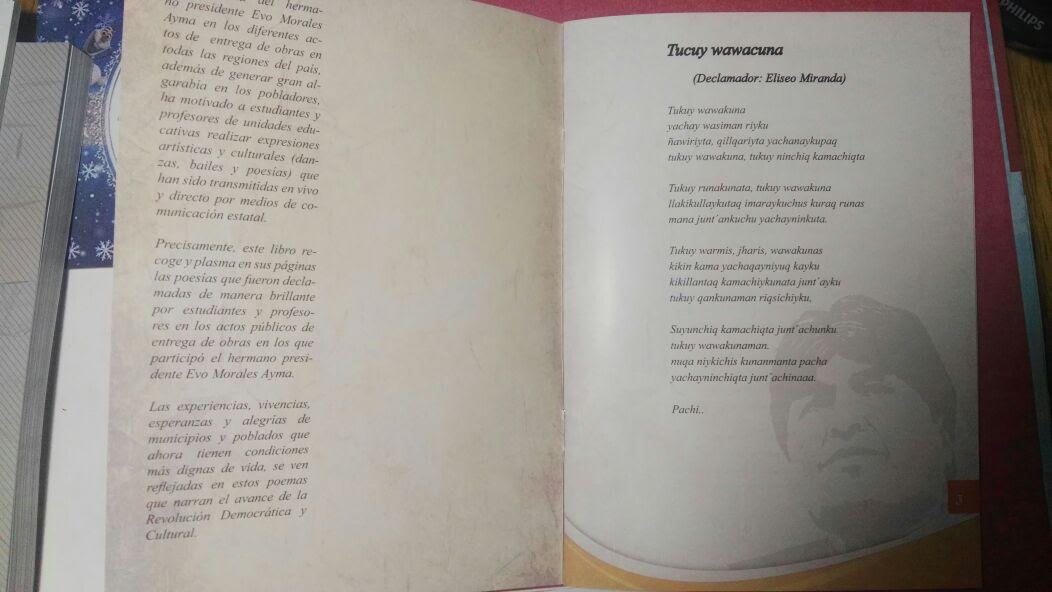 del herma-
no presidente Evo Morales
Ayma en los diferentes ac-
tos de entrega de obras en
todas las regiones del país,
además de generar gran al-
garabia en los pobladores,
ha motivado a estudiantes y
profesores de unidades edu-
cativas realizar expresiones
artísticas y culturales (dan-
zas, bailes y poesías) que
han sido transmitidas en vivo
y directo por medios de co-
municación estatal.
Precisamente, este libro re-
coge y plasma en sus páginas
las poesías que fueron decla-
madas de manera brillante
por estudiantes y profeso-
res en los actos públicos de
entrega de obras en los que
participó el hermano presi-
dente Evo Morales Ayma.
Las experiencias, vivencias,
esperanzas y alegrías de
municipios y poblados que
ahora tienen condiciones
más dignas de vida, se ven
reflejadas en estos poemas
que narran el avance de la
Revolución Democrática y
Cultural.
Tucuy wawacuna
(Declamador: Eliseo Miranda)
Tukuy wawakuna
yachay wasiman riyku
ñawiriyta, qillqariyta yachanaykupaq
tukuy wawakuna, tukuy ninchiq kamachiqta
Tukuy runakunata, tukuy wawakuna
llakikullaykutaq imaraykuchus kuraq runas
mana junt´ankuchu yachayninkuta.
Tukuy warmis, jharis, wawakunas
kikin kama yachaqayniyuq kayku
kikillantaq kamachiykunata junt´ayku
tukuy qankunaman riqsichiyku,
Suyunchiq kamachiqta junt´achunku
tukuy wawakunaman.
nuqa niykichis kunanmanta pacha
yachayninchiqta junt´achinaaa.
Pachi..
3
PHILIPS